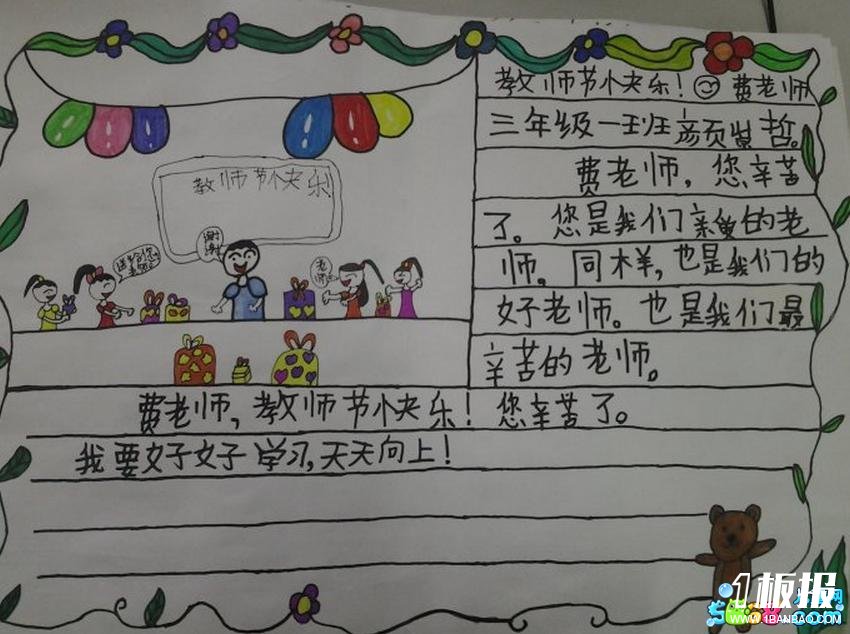 教师节快乐
谢谢
老师
教师节快乐！ 费老师
三年级一班
哲。
费老师，您辛苦
了。您是我们亲爱的老
师，同样，也是我们的
好老师。也是我们最
辛苦的老师。
费老师，教师节快乐！您辛苦了。
我要好好学习，天天向上！
1板报
WWW.1BANBAO.COM
.com